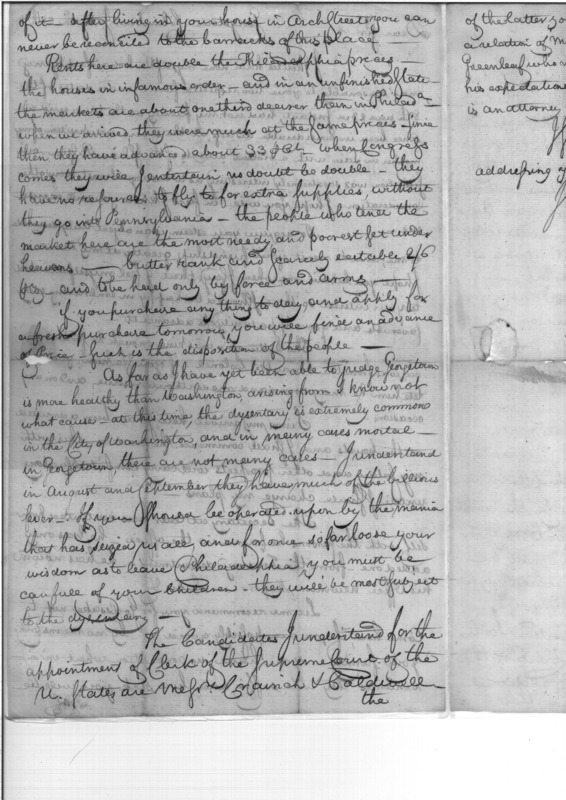 of it - after living in your house in Arch Street you can
never be reconciled to the barracks of this place
Rents here are double the Philadelphia prices -
the houses in infamous order - and in an unfinished state
the markets are about one third dearer than in Philada -
when we arrived they were much at the same prices - since
then they have advanced about 33 P Ct - when Congress
comes they will I entertain no doubt be double - they
have no resources to fly to for extra supplies without
they go into Pennsylvania - the people who tend the
market here are the most needy and poorest set under
heavens butter rank and scarcely eatable 2/6
and to be had only by force and arms -
if you purchase any thing to day and apply for
a fresh purchase tomorrow, you will find an advance
of Price - such is the disposition of the people -
As far as I have yet been able to judge Georgetown
is more healthy than Washington arising from I know not
what cause - at this time, the dysentary is extremely common
in the City of Washington and in many cases mortal -
in Georgetown, there are not many cases - I understand
in August and September they have much of the billious
fever - If you should be operated upon by the mania
that has seized us all and for once so far loose your
wisdom as to leave Philadelphia you must be
carefull of your Children - they will be most subject
to the dysentary -
The Candidates I understand for the
appointment of Clerk of the Supreme Court of the
U. States are Messrs Cranch & Caldwell -
the
of the latter yo
a relation of M
Greenleaf who
his expectations
is an attorney
addressing y